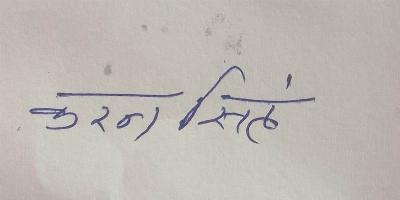 करन सिहं